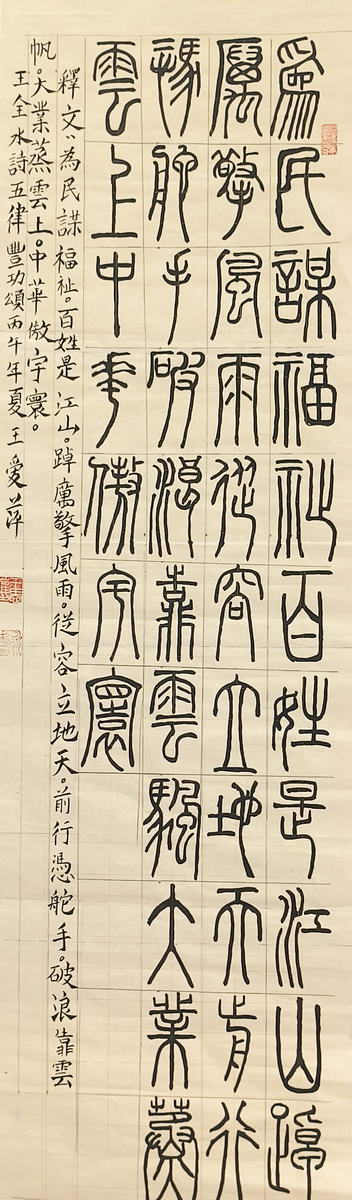 為民謀福祉百姓是江山踔
厲擎風雨從容立地天前行
憑舵手破浪靠雲帆大業蒸
雲上中華傲宇寰
釋文：為民謀福祉。百姓是江山。踔厲擎風雨。從容立地天。前行憑舵手。破浪靠雲
帆。大業蒸雲上。中華傲宇寰。
王全水詩五律豐功頌丙午年夏王愛萍